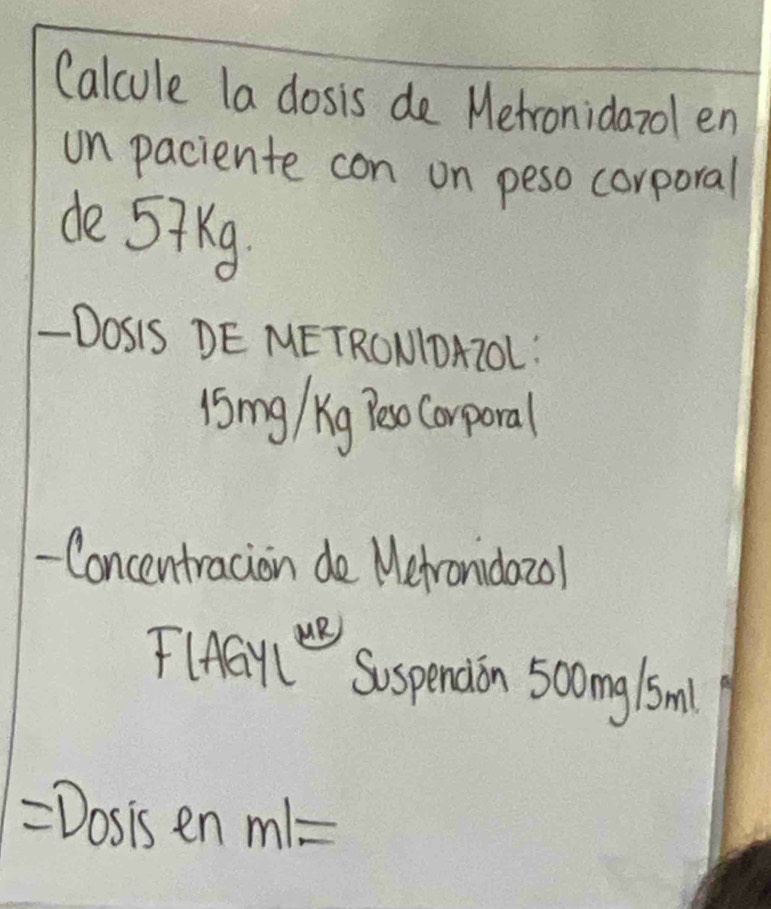 Calcule la dosis de Metronidazol en
un paciente con un peso corporal
de 57Kg.
-DOSIS DE METRONIDAZOL:
15mg/Kg Peso Corporal
-Concentración de Metronidazol
FLAGYL MR Suspención 500mg/5ml
=Dosis en ml=